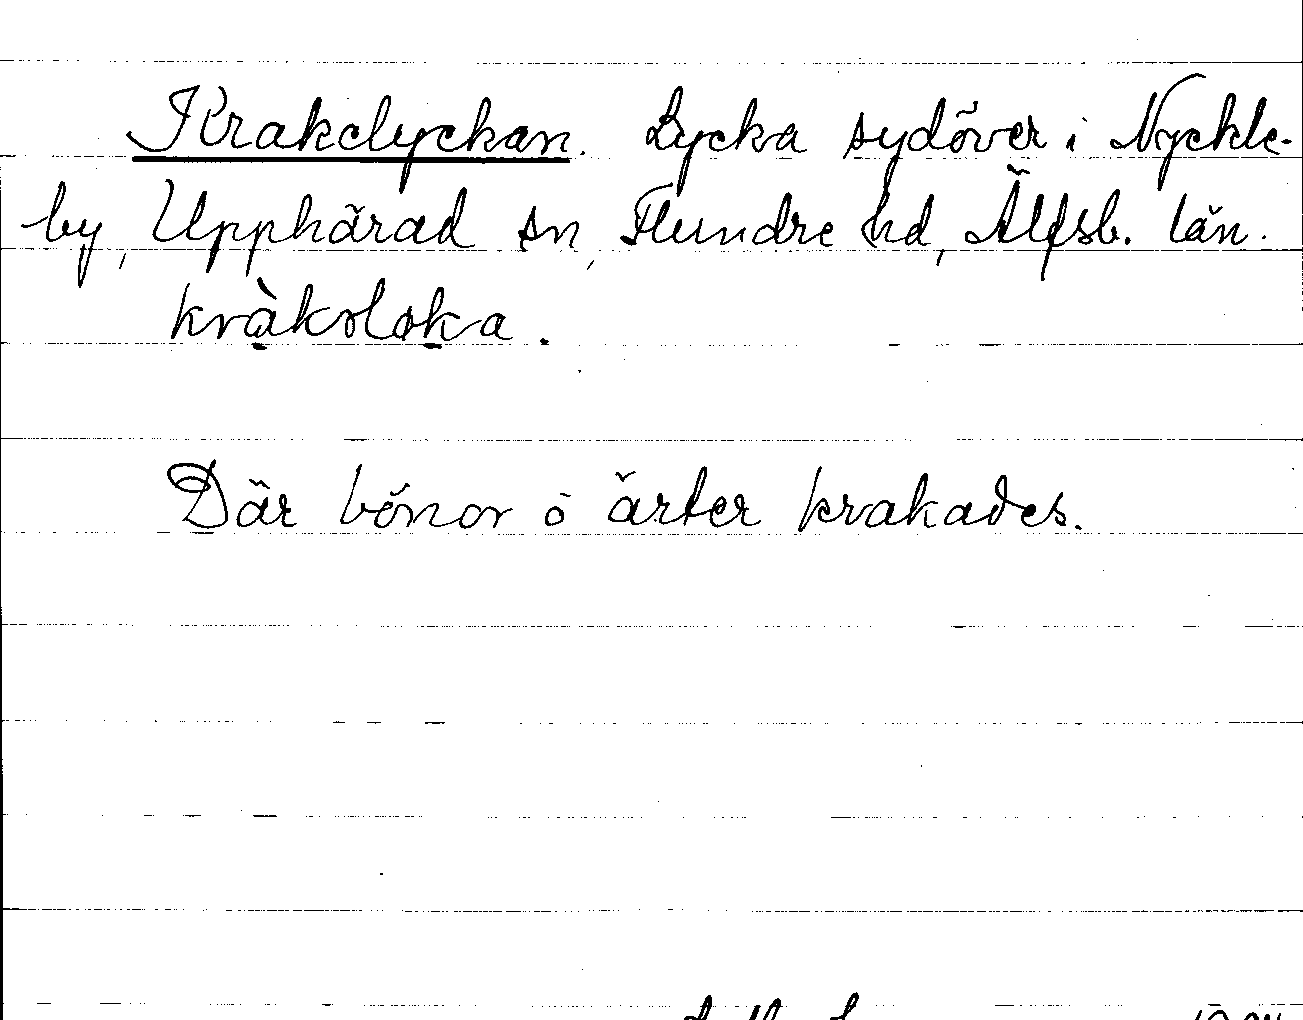 Krakelyckan. Lycka sydöver i Nyckle-
by, Upphärad sn, Flundre hd, Älfsb. län.
kràkoloka.
Där bönor o ärter krakades.